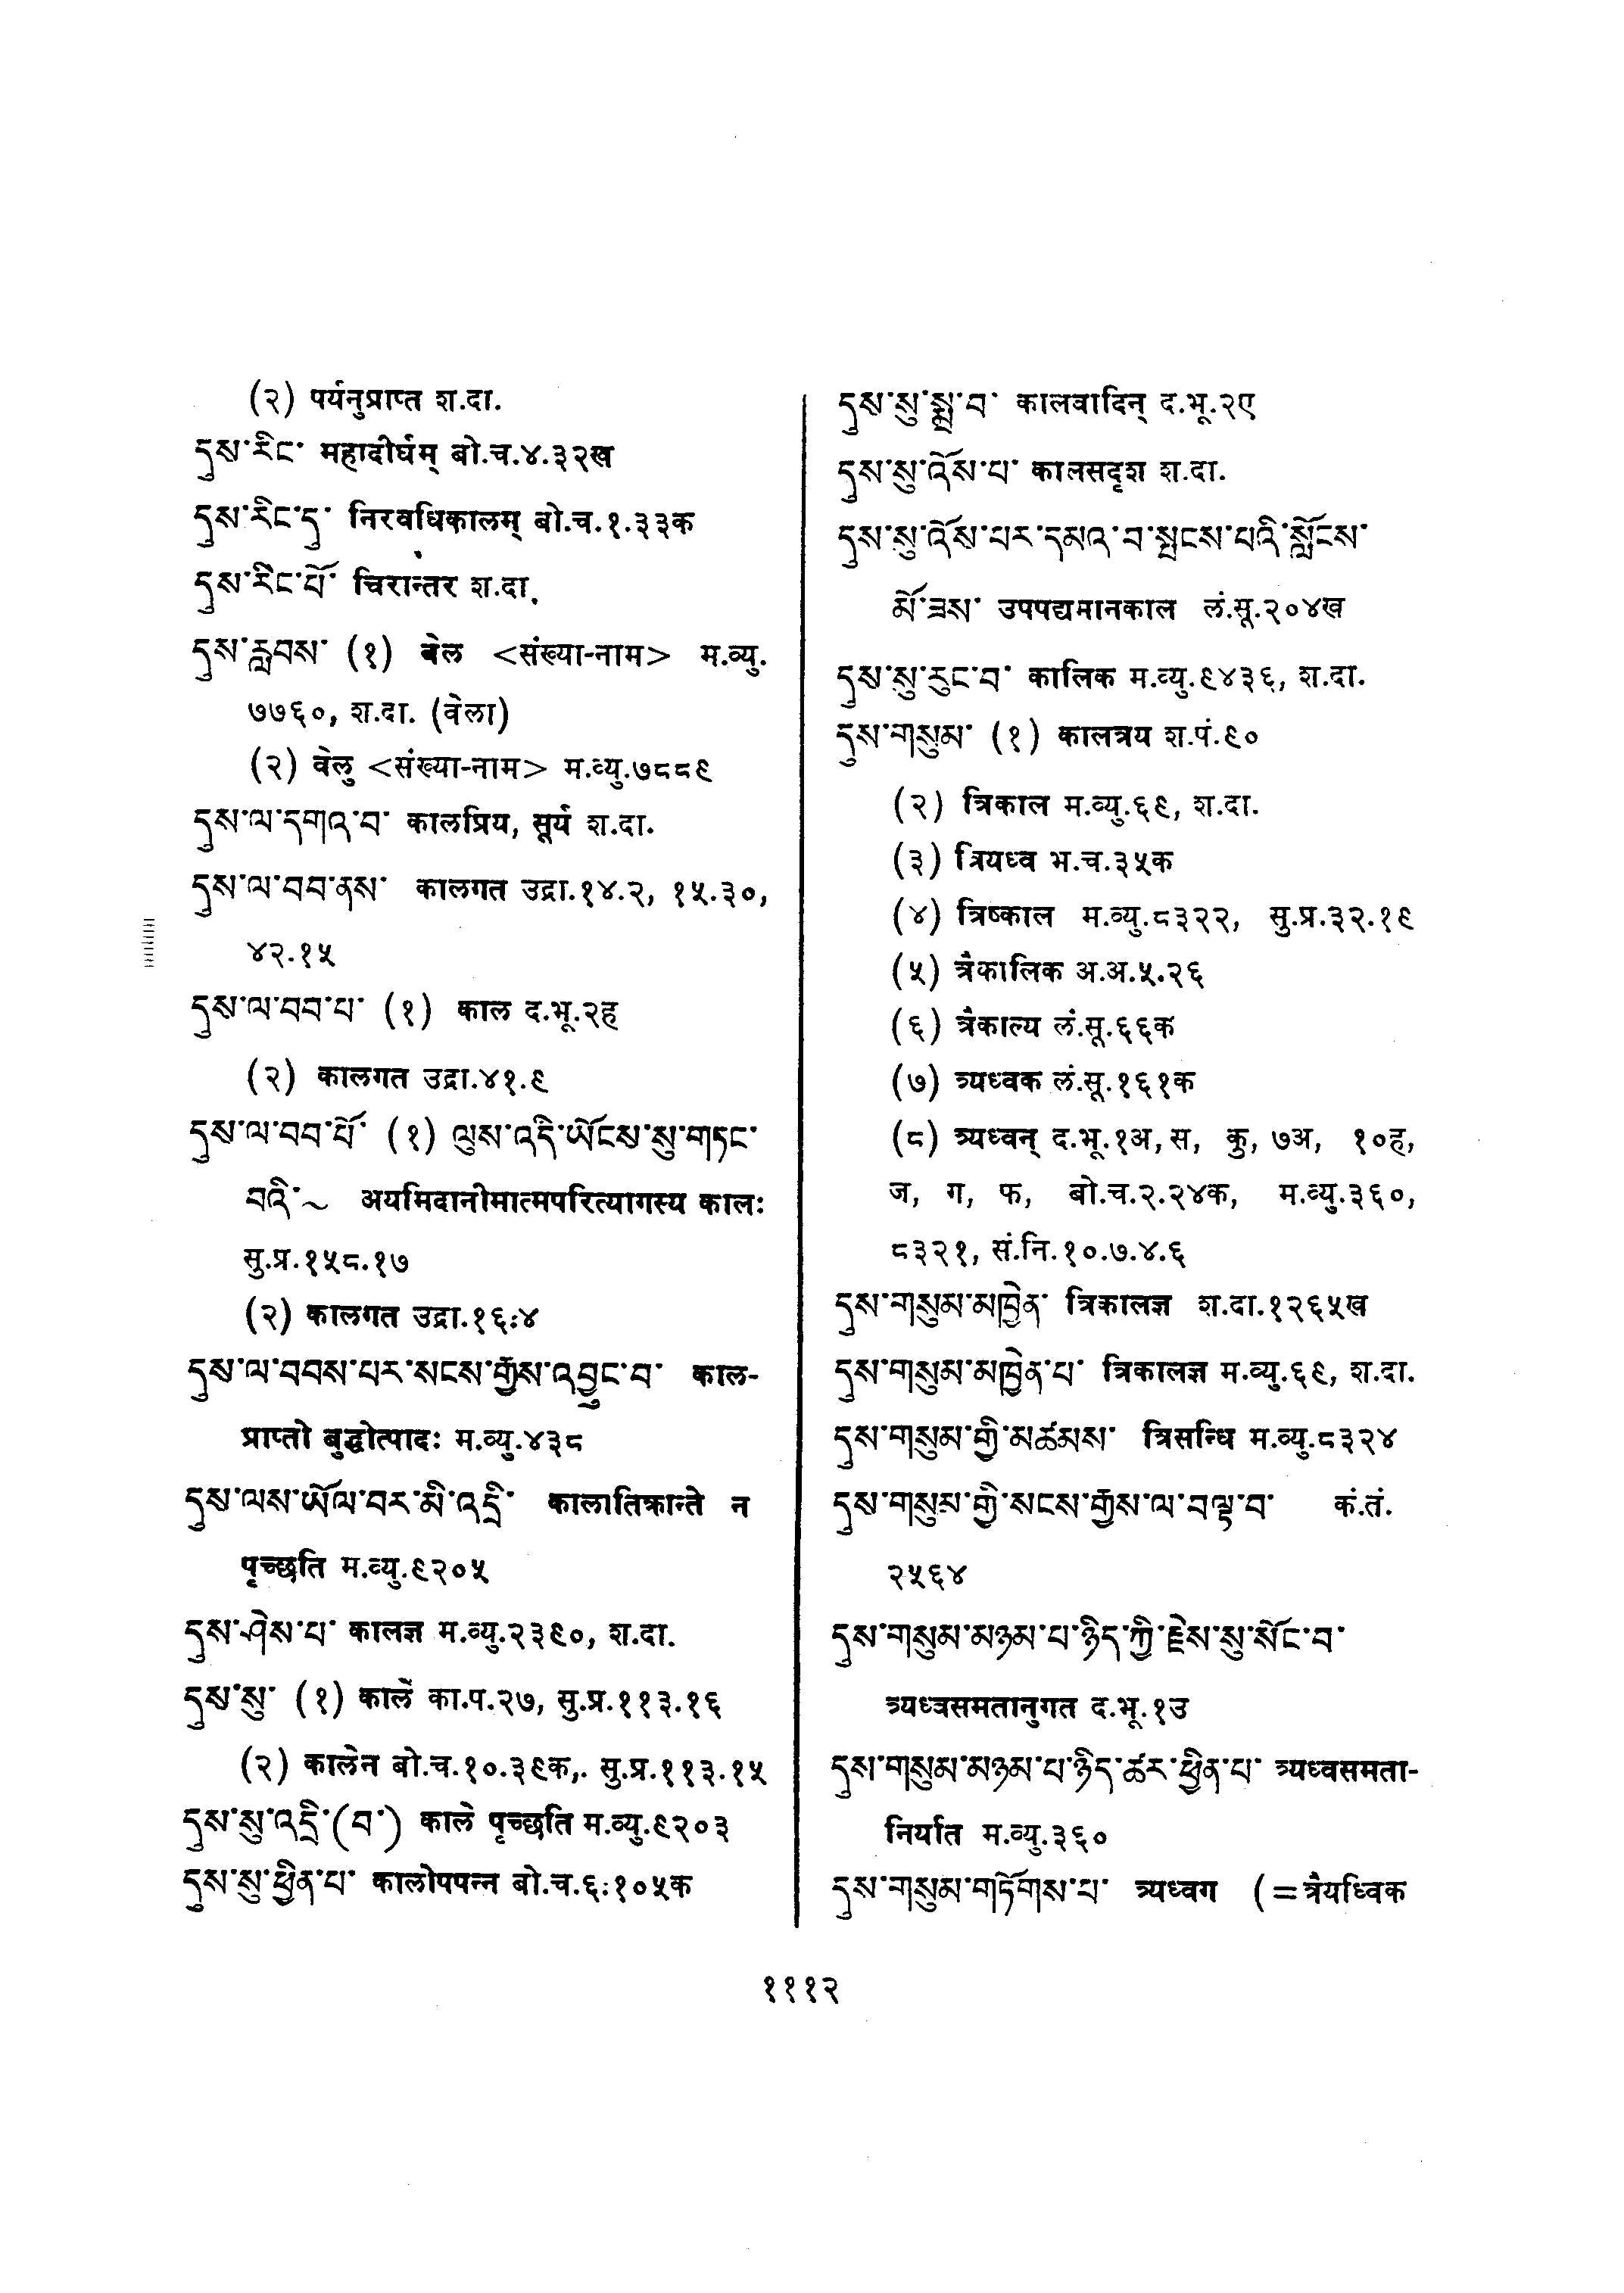 (२) पर्यनुप्राप्त श.दा.
དུས་རིང་ महादीर्घम् बो.च.४.३२ख
དུས་རིང་དུ་ निरवधिकालम् बो.च.१.३३क
དུས་རིང་པོ་ चिरान्तर श.दा.
དུས་རླབས་ (१) बेल <संख्या-नाम> म.व्यु.
७७६०, श.दा. (वेला)
(२) वेलु <संख्या-नाम> म.व्यु.७८८९
དུས་ལ་དགའ་བ་ कालप्रिय, सूर्य श.दा.
དུས་ལ་བབ་ནས་ कालगत उद्रा.१४.२, १५.३०,
४२.१५
དུས་ལ་བབ་པ་ (१) काल द.भू.२ह
(२) कालगत उद्रा.४१.९
དུས་ལ་བབ་པོ་ (१) ལུས་འདི་ཡོངས་སུ་གཏང་
བའི་~ अयमिदानीमात्मपरित्यागस्य कालः
सु.प्र.१५८.१७
(२) कालगत उद्रा.१६:४
དུས་ལ་བབས་པར་སངས་རྒྱས་འབྱུང་བ་ काल-
प्राप्तो बुद्धोत्पादः म.व्यु.४३८
དུས་ལས་ཡོལ་བར་མི་འདྲི་ कालातिक्रान्ते न
पृच्छति म.व्यु.९२०५
དུས་ཤེས་པ་ कालज्ञ म.व्यु.२३९०, श.दा.
དུས་སུ་ (१) काले का.प.२७, सु.प्र.११३.१६
(२) कालेन बो.च.१०.३९क,. सु.प्र.११३.१५
དུས་སུ་འདྲི་(བ་) काले पृच्छति म.व्यु.९२०३
དུས་སུ་ཕྱིན་པ་ कालोपपन्न बो.च.६:१०५क
དུས་སུ་སྨྲ་བ་ कालवादिन् द.भू.२ए
དུས་སུ་འོས་པ་ कालसदृश श.दा.
དུས་སུ་འོས་པར་དམའ་བ་སྤངས་པའི་སློངས་
མོ་ཟས་ उपपद्यमानकाल लं.सू.२०४ख
དུས་སུ་རུང་བ་ कालिक म.व्यु.९४३६, श.दा.
དུས་གསུམ་ (१) कालत्रय श.पं.९०
(२) त्रिकाल म.व्यु.६९, श.दा.
(३) त्रियध्व भ.च.३५क
(४) त्रिष्काल म.व्यु.८३२२, सु.प्र.३२.१९
(५) त्रैकालिक अ.अ.५.२६
(६) त्रैकाल्य लं.सू.६६क
(७) त्र्यध्वक लं.सू.१६१क
(८) त्र्यध्वन् द.भू.१अ, स, कु, ७अ, १०ह,
ज, ग, फ, बो.च.२.२४क, म.व्यु.३६०,
८३२१, सं.नि.१०.७.४.६
དུས་གསུམ་མཁྱེན་ त्रिकालज्ञ श.दा.१२६५ख
དུས་གསུམ་མཁྱེན་པ་ त्रिकालज्ञ म.व्यु.६९, श.दा.
དུས་གསུམ་གྱི་མཚམས་ त्रिसन्धि म.व्यु.८३२४
དུས་གསུམ་གྱི་སངས་རྒྱས་ལ་བལྟ་བ་ कं.तं.
२५६४
དུས་གསུམ་མཉམ་པ་ཉིད་ཀྱི་རྗེས་སུ་སོང་བ་
त्र्यध्वसमतानुगत द.भू.१उ
དུས་གསུམ་མཉམ་པ་ཉིད་ཚར་ཕྱིན་པ་ त्र्यध्वसमता-
निर्यात म.व्यु.३६०
དུས་གསུམ་གཏོགས་པ་ त्र्यध्वग (=त्रैयध्विक
१११२